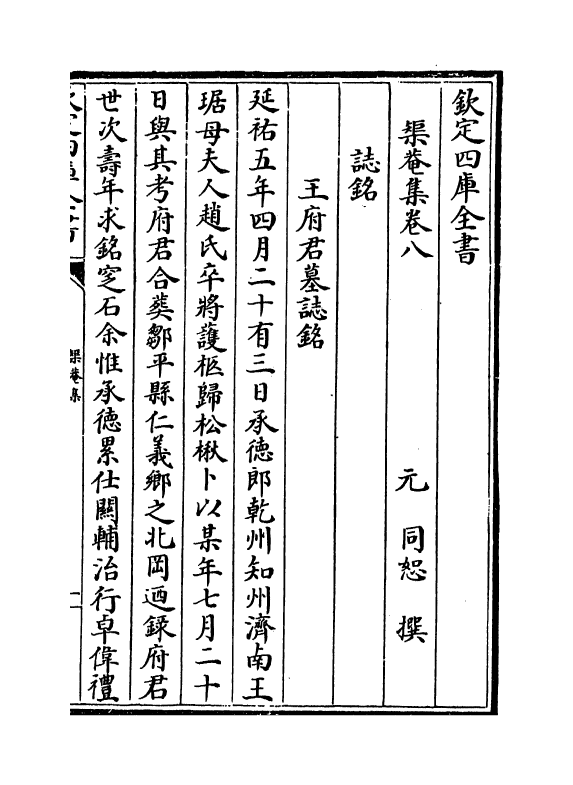 欽定四庫全書
榘菴集卷八
元 同恕 撰
誌銘
王府君墓誌銘
延祐五年四月二十有三日承德郎乾州知州濟南王
琚母夫人趙氏卒將護柩歸松楸卜以某年七月二十
日與其考府君合葬鄒平縣仁義鄉之北岡迺錄府君
世次壽年求銘窆石余惟承德累仕關輔治行卓偉禮
榘菴集
一